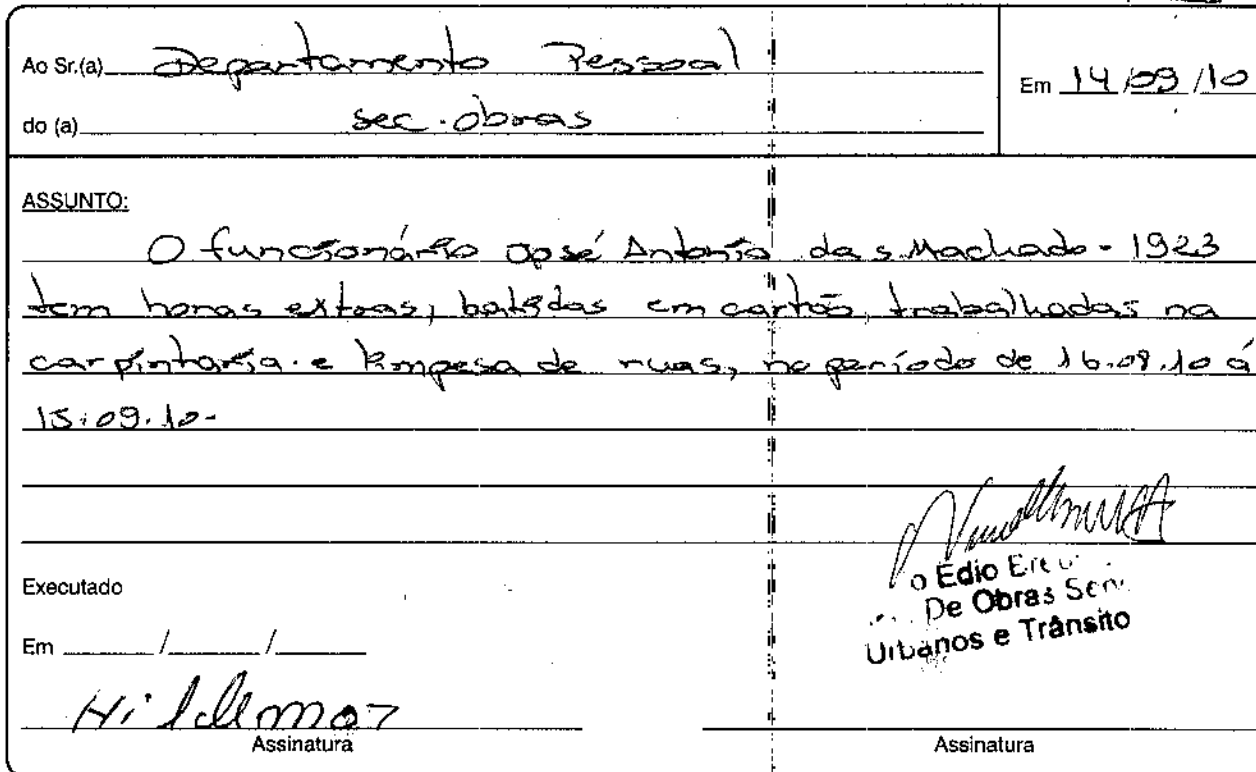 Ao Sr.(a) Departamento Pessoal
Em 14/09/10
do (a) sec. obras
ASSUNTO:
O funcionário José Antonio da s. Machado - 1923
tem horas extras, batidas em cartão, trabalhadas na
carpintaria e limpesa de ruas, no período de 16.08.10 á
15.09.10-
Executado
o Edio
De Obras
Em / /
Urbanos e Trânsito
Hildemar
Assinatura
Assinatura